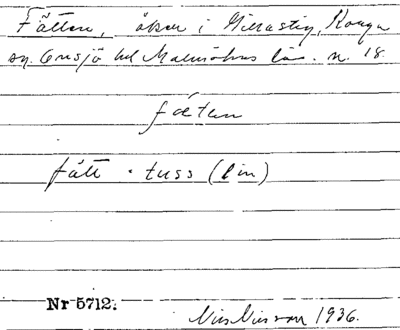 Fätten, åker i Gillastig, Konga
sn. Onsjö hd Malmöhus län. n. 18.
fæten
fätt · tuss (lin)
Nr 5712.
Nils Nilsson 1936.